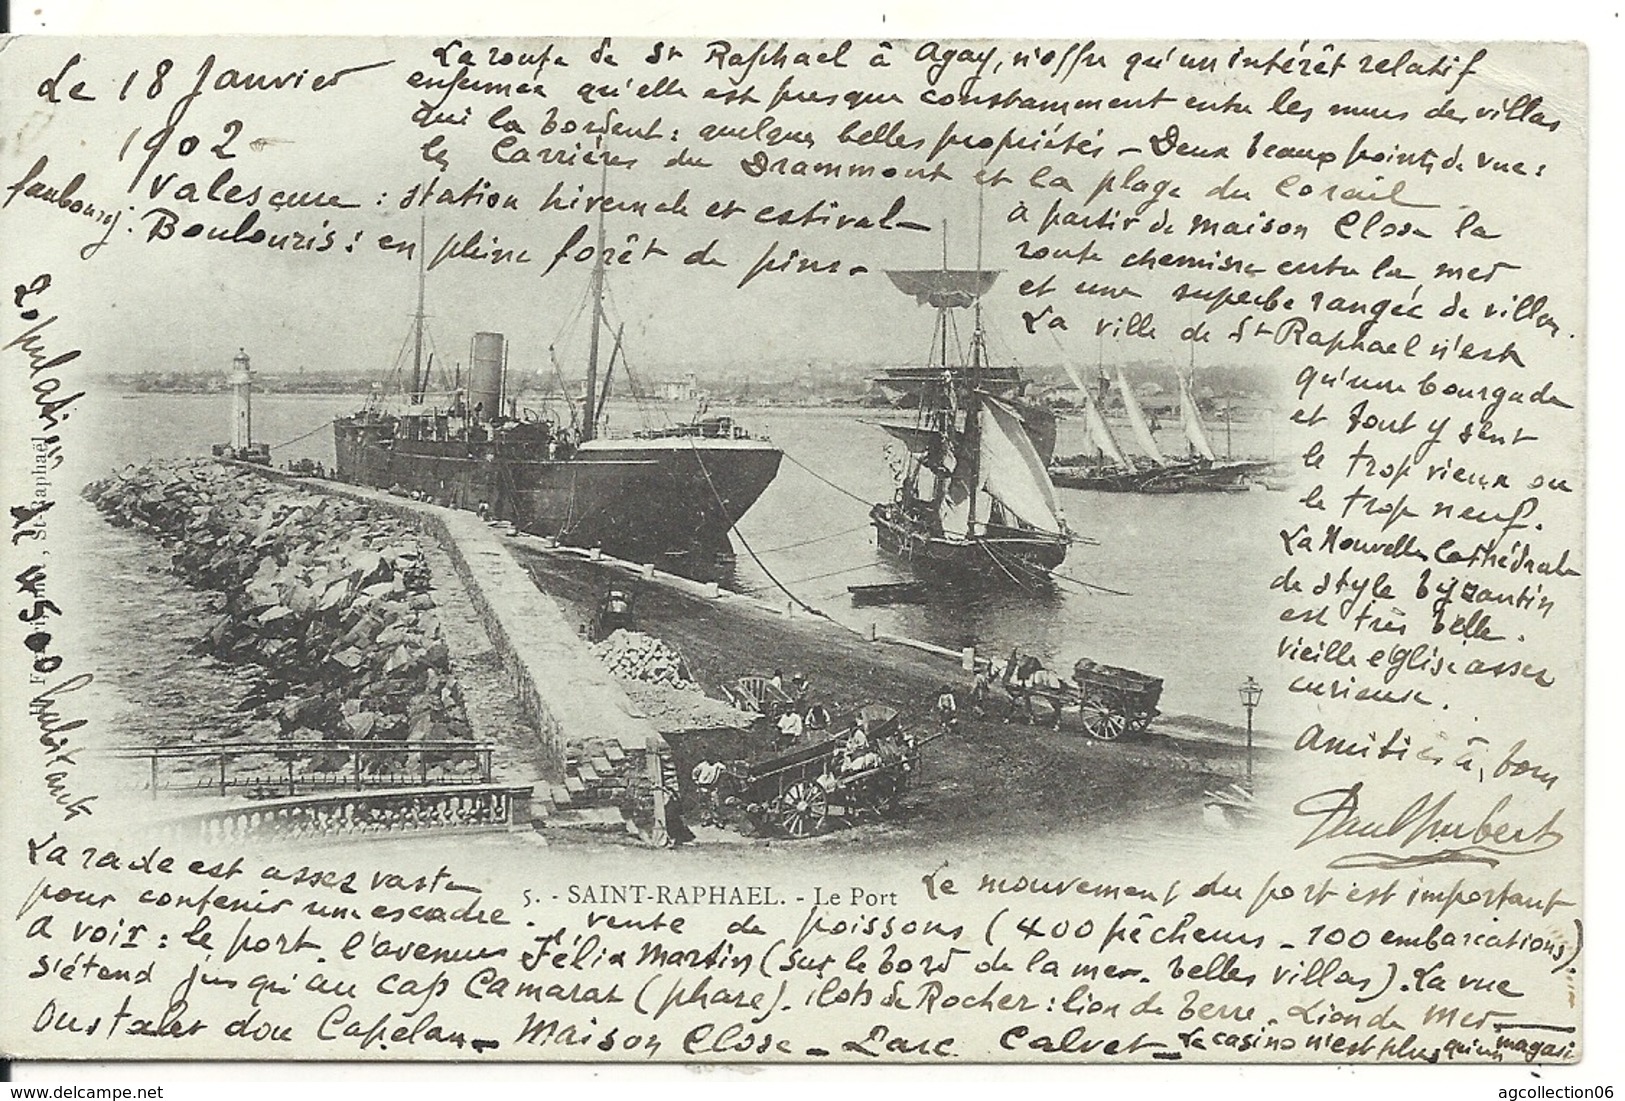 Le 18 Janvier
1902
La route de St Raphael à Agay, n'offre qu'un intérêt relatif
enfermée qu'elle est presque constamment entre les murs des villas
qui la bordent : quelques belles propriétés - Deux beaux points de vue :
les Carrières du Drammont et la plage du Corail.
faubourg : Valescure : station hivernale et estivale
Boulouris : en pleine forêt de pins -
à partir de Maison Close la
route chemine entre la mer
et une superbe rangée de villas.
La ville de St Raphael n'est
qu'une bourgade
et tout y sent
le trop vieux ou
le trop neuf.
La Nouvelle Cathédrale
de style byzantin
est très belle.
vieille église assez
curieuse.
Amitiés à, tous
Paul Hubert
Population 5000 habitants
St-Raphaël
La rade est assez vaste
pour contenir une escadre.
5. - SAINT-RAPHAEL. - Le Port
Le mouvement du port est important
- vente de poissons (400 pêcheurs - 100 embarcations).
A voir : le port. l'avenue Félix Martin (sur le bord de la mer. belles villas). La vue
s'étend jusqu'au cap Camarat (phare). ilots de Rocher : lion de terre. Lion de mer -
Oustalet dou Capelan - Maison Close - Parc Calvet - Le casino n'est plus qu'un magasi
agcollection06